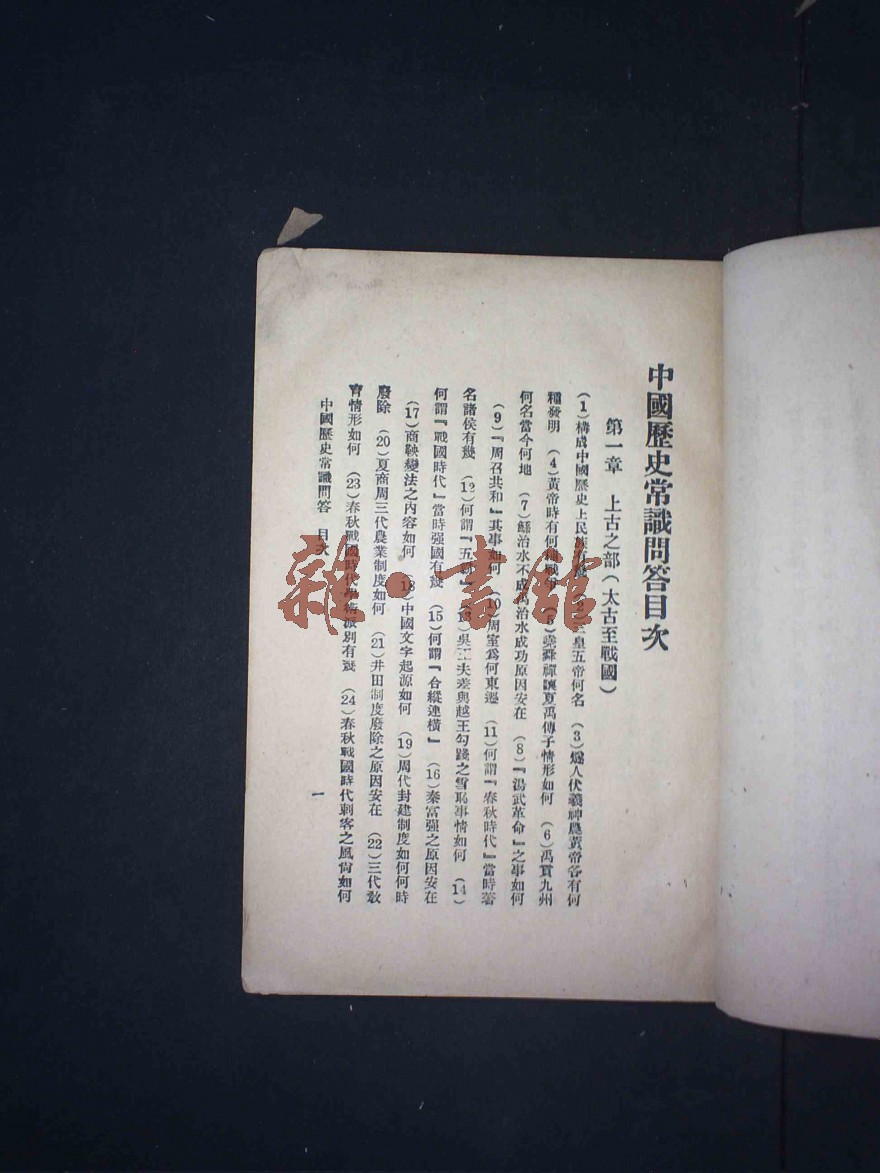 中國歷史常識問答目次
第一章　上古之部（太古至戰國）
（1）構成中國歷史上民族有幾（2）三皇五帝何名（3）燧人伏羲神農黃帝各有何
種發明（4）黃帝時有何種戰爭（5）堯舜禪讓夏禹傳子情形如何（6）禹貢九州
何名當今何地（7）鯀治水不成禹治水成功原因安在（8）『湯武革命』之事如何
（9）『周召共和』其事如何（10）周室為何東遷（11）何謂『春秋時代』當時著
名諸侯有幾（12）何謂『五霸』（13）吳王夫差與越王勾踐之雪恥事情如何（14）
何謂『戰國時代』當時强國有幾（15）何謂『合縱連橫』（16）秦富强之原因安在
（17）商鞅變法之內容如何（18）中國文字起源如何（19）周代封建制度如何何時
廢除（20）夏商周三代農業制度如何（21）井田制度廢除之原因安在（22）三代教
育情形如何（23）春秋戰國時代學術派別有幾（24）春秋戰國時代刺客之風尚如何
中國歷史常識問答　目次
一
雜·書館